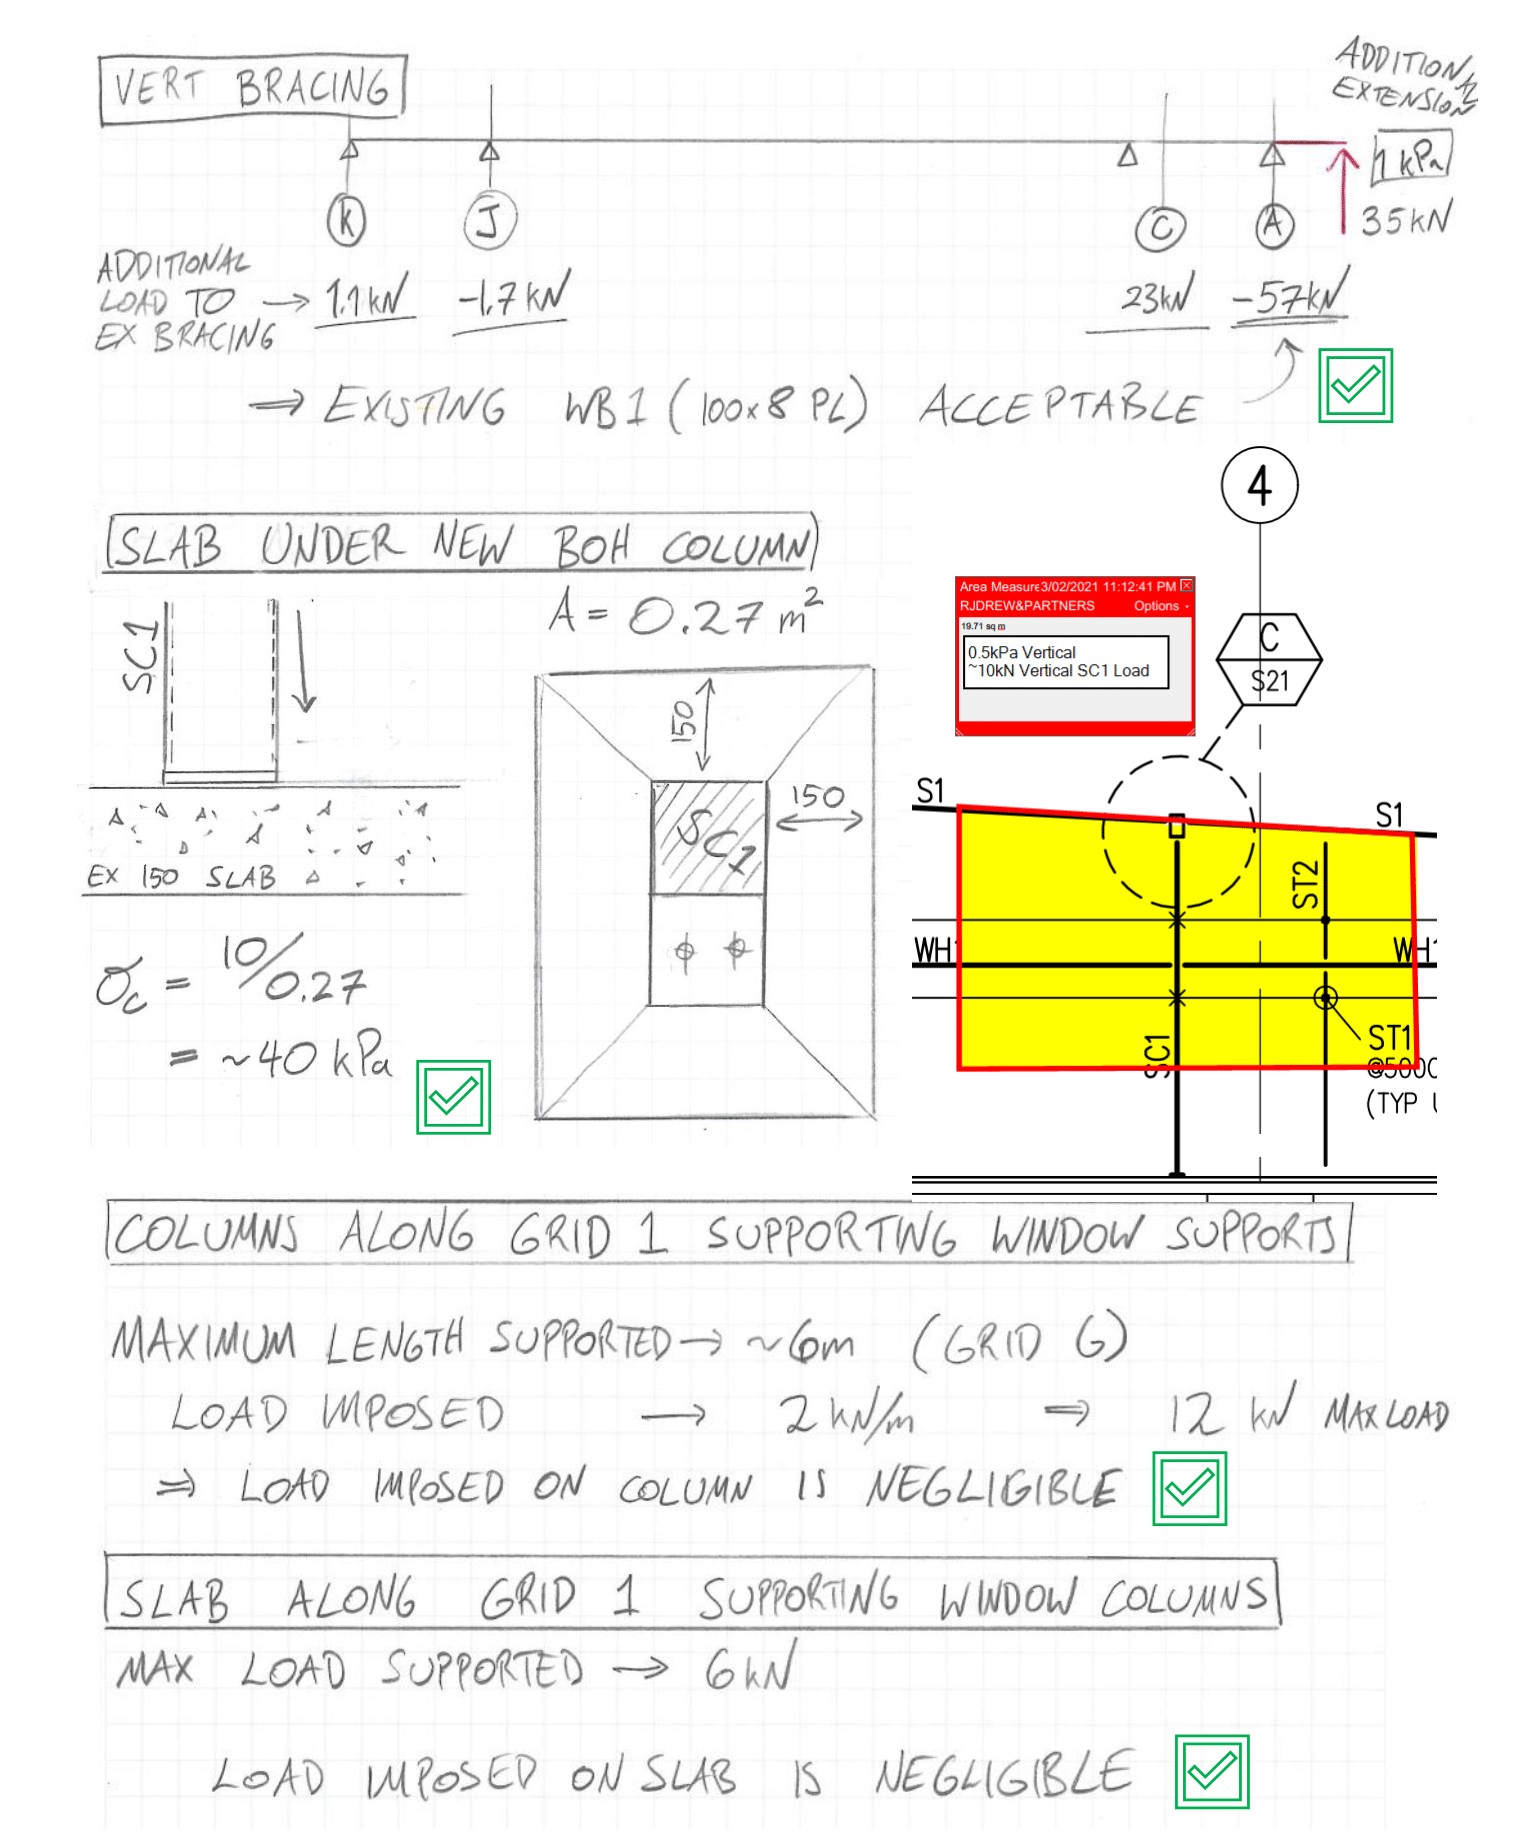 VERT BRACING
ADDITIONAL
EXTENSION
1 kPa
35kN
K
J
C
A
ADDITIONAL
LOAD TO → 1.1kN -1.7kN 23kN -57kN
EX BRACING
⇒ EXISTING WB1 (100x8 PL) ACCEPTABLE
4
SLAB UNDER NEW BOH COLUMN
A = 0.27 m²
Area Measure3/02/2021 11:12:41 PM
RJDREW&PARTNERS Options
19.71 sq m
0.5kPa Vertical
~10kN Vertical SC1 Load
C
S21
SC1
150
150
SC1
EX 150 SLAB
σc = 10/0.27
= ~40 kPa
S1
S1
ST2
WH1
WH1
SC1
ST1
@500
(TYP
COLUMNS ALONG GRID 1 SUPPORTING WINDOW SUPPORTS
MAXIMUM LENGTH SUPPORTED → ~6m (GRID G)
LOAD IMPOSED → 2 kN/m ⇒ 12 kN MAX LOAD
⇒ LOAD IMPOSED ON COLUMN IS NEGLIGIBLE
SLAB ALONG GRID 1 SUPPORTING WINDOW COLUMNS
MAX LOAD SUPPORTED → 6kN
LOAD IMPOSED ON SLAB IS NEGLIGIBLE